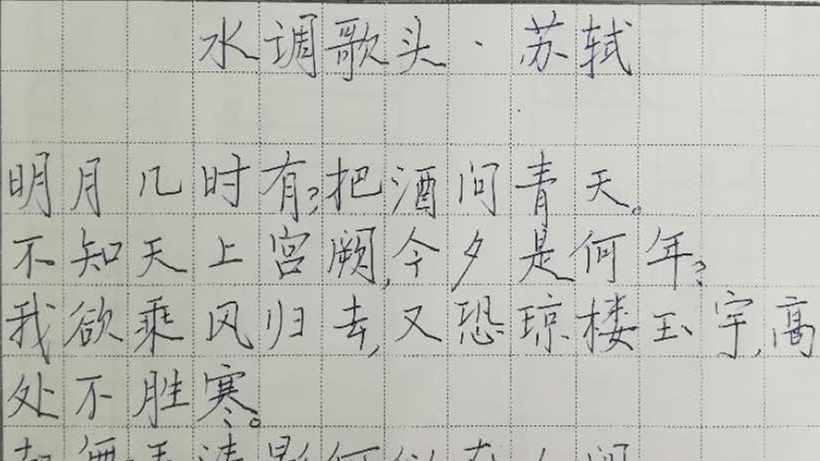 水调歌头·苏轼
明月几时有?把酒问青天。
不知天上宫阙,今夕是何年?
我欲乘风归去,又恐琼楼玉宇,高
处不胜寒。